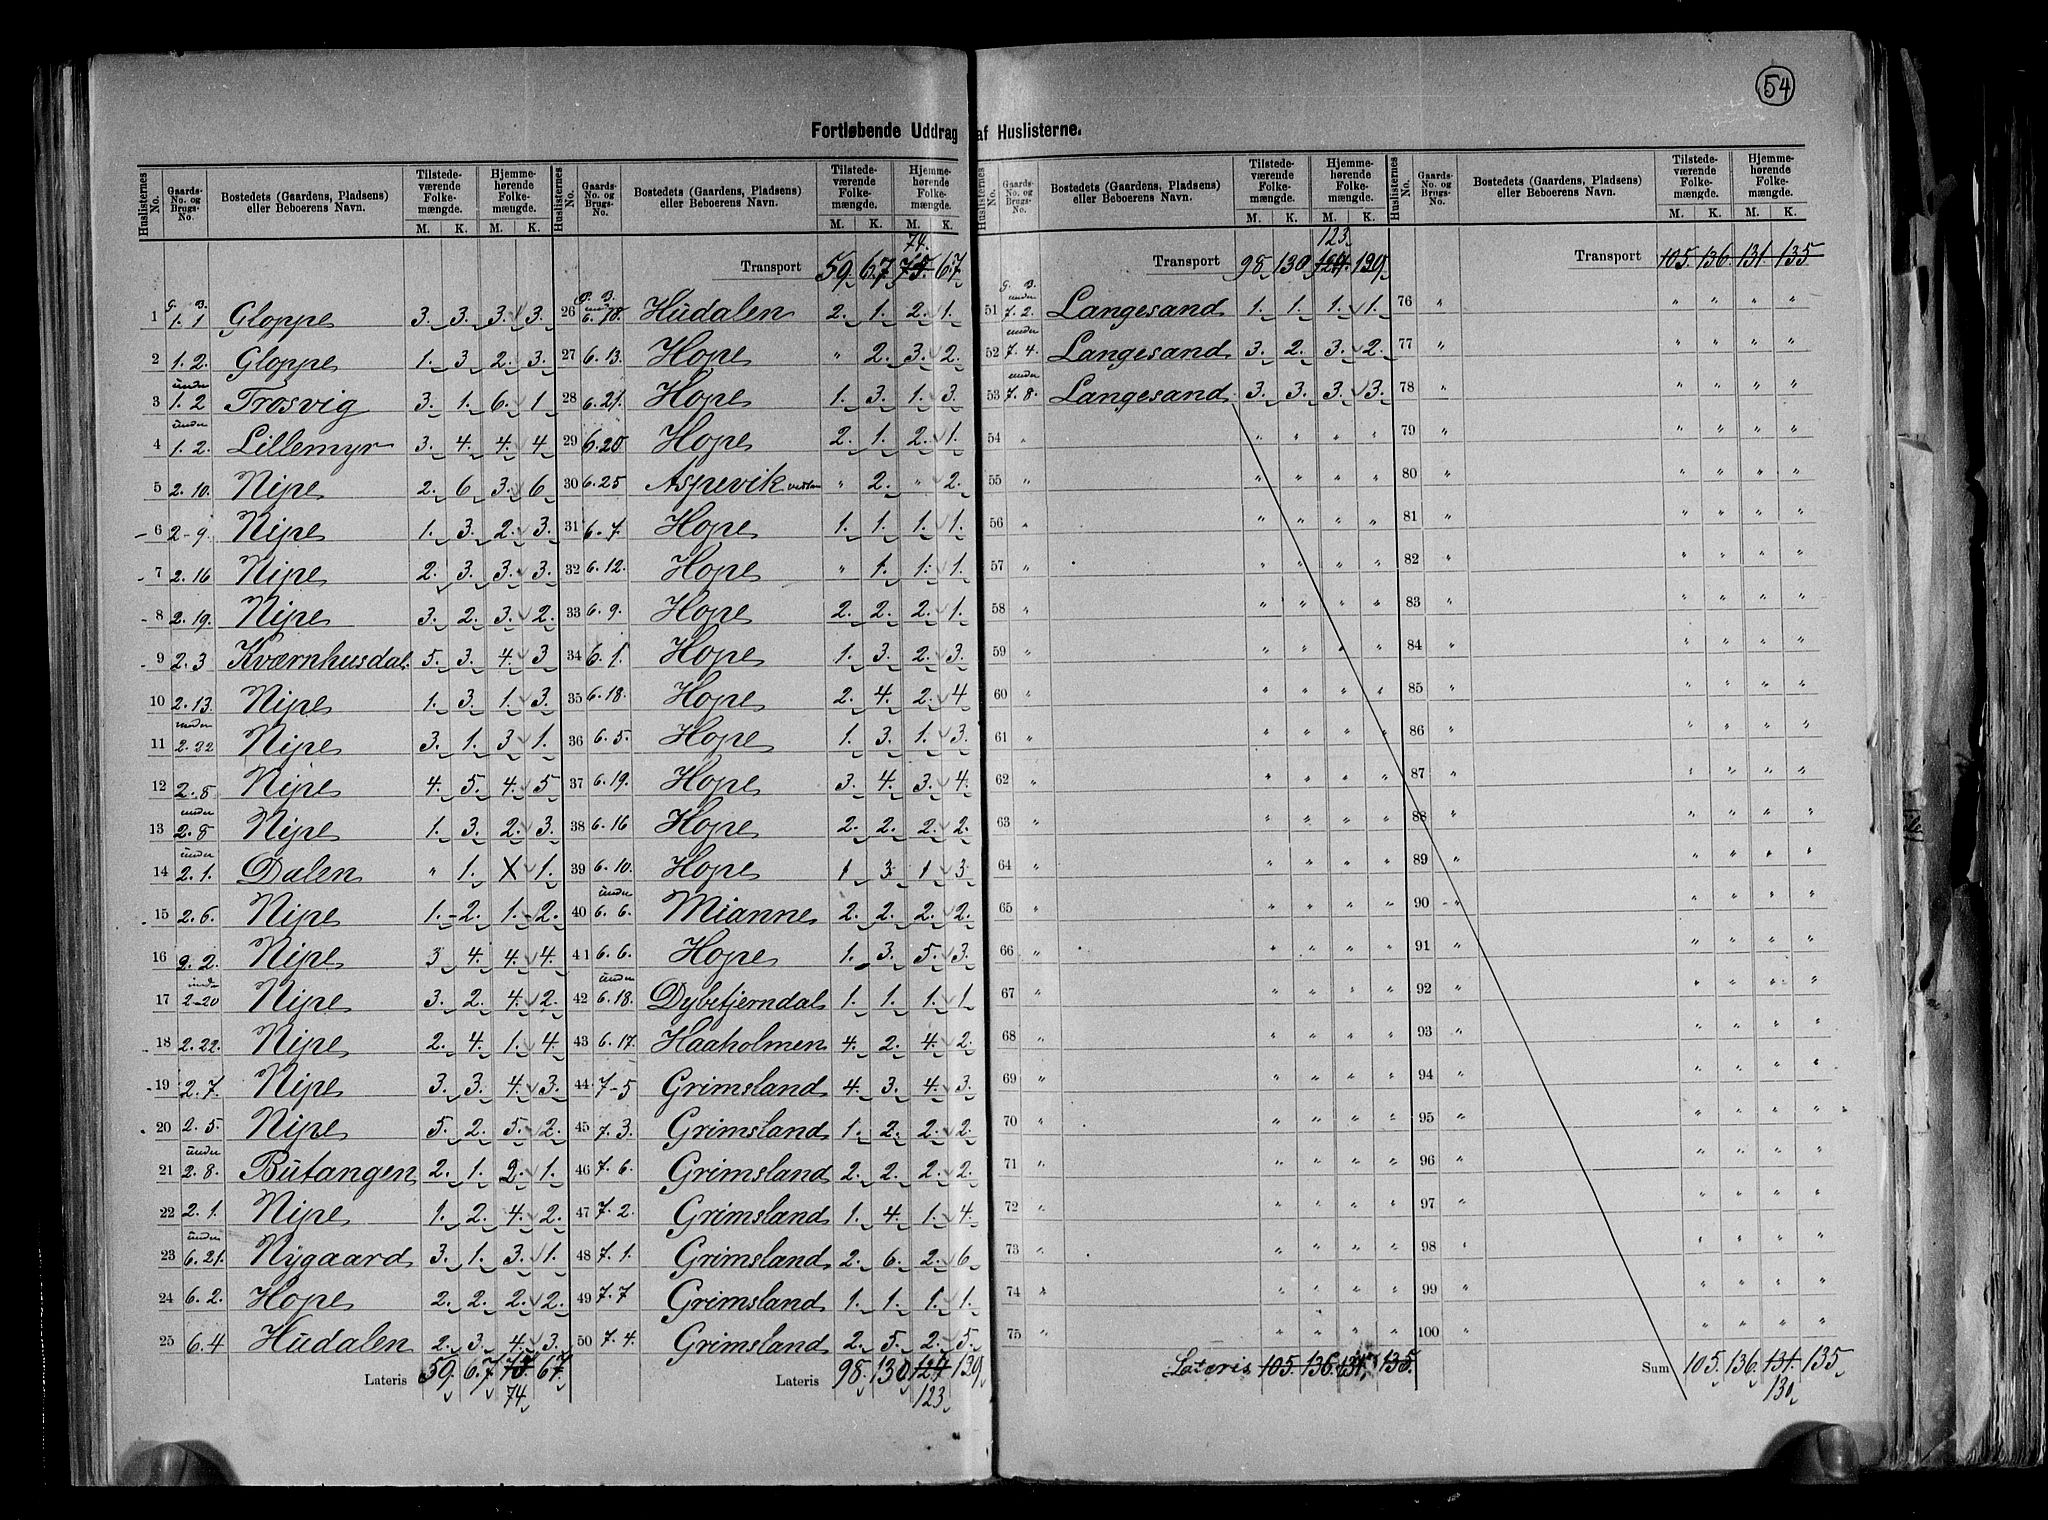 54
Fortløbende Uddrag af Huslisterne.
Huslisternes No. | Gaards-No. og Brugs-No. | Bostedets (Gaardens, Pladsens) eller Beboerens Navn. | Tilstedeværende Folkemængde. M. K. | Hjemmehørende Folkemængde. M. K.
1 | G. B. 1. 1 | Gloppe | 3. | 3. | 3. | 3.
2 | 1. 2. | Gloppe | 1. | 3 | 2. | 3.
3 | under 1. 2 | Trosvig | 3. | 1. | 6. | 1
4 | under 1. 2. | Lillemyr | 3. | 4. | 4. | 4
5 | 2. 10. | Nipe | 2. | 6 | 3. | 6
6 | 2-9. | Nipe | 1. | 3. | 2. | 3.
7 | 2. 16 | Nipe | 2. | 3. | 3. | 3.
8 | 2. 19. | Nipe | 3. | 2. | 3. | 2.
9 | 2. 3 | Kværnhusdal. | 5. | 3. | 4. | 3
10 | 2. 13. | Nipe | 1. | 3. | 1. | 3.
11 | under 2. 22 | Nipe | 3. | 1. | 3 | 1.
12 | 2. 8 | Nipe | 4. | 5. | 4. | 5
13 | under 2. 8 | Nipe | 1. | 3. | 2. | 3.
14 | under 2. 1. | Dalen | " | 1. | X | 1.
15 | 2. 6. | Nipe | 1. | 2. | 1. | 2.
16 | 2. 2. | Nipe | 3 | 4. | 4. | 4.
17 | under 2-20 | Nipe | 3. | 2. | 4. | 2.
18 | 2. 22. | Nipe | 2. | 4. | 1. | 4.
19 | 2. 7. | Nipe | 3. | 3. | 4. | 3.
20 | 2. 5. | Nipe | 5. | 2. | 5. | 2.
21 | under 2. 8. | Butangen | 2. | 1. | 2. | 1.
22 | 2. 1. | Nipe | 1. | 2. | 4. | 2.
23 | under 6. 21. | Nygaard | 3. | 1. | 3. | 1.
24 | 6. 2. | Hope | 2. | 2. | 2. | 2.
25 | 6. 4 | Hudalen | 2. | 3. | 4. | 3.
Lateris 59. 67. 75. 67.
74.
Huslisternes No. | Gaards-No. og Brugs-No. | Bostedets (Gaardens, Pladsens) eller Beboerens Navn. | Tilstedeværende Folkemængde. M. K. | Hjemmehørende Folkemængde. M. K.
74.
Transport 59. 67 75. 67
26 | G. B. under 6. 18. | Hudalen | 2. | 1. | 2. | 1.
27 | 6. 13. | Hope | " | 2. | 3. | 2.
28 | 6. 21. | Hope | 1. | 3. | 1. | 3.
29 | 6. 20 | Hope | 2. | 1. | 2. | 1.
30 | 6. 25 | Aspevik | " | 2. | " | 2.
31 | 6. 7. | Hope | 1. | 1. | 1. | 1.
32 | 6. 12. | Hope | " | 1. | 1. | 1.
33 | 6. 9. | Hope | 2. | 2. | 2. | 1.
34 | 6. 1. | Hope | 1. | 3. | 2. | 3.
35 | 6. 18. | Hope | 2. | 4. | 2. | 4
36 | 6. 5. | Hope | 1. | 3. | 1. | 3.
37 | 6. 19. | Hope | 3. | 4. | 3. | 4.
38 | 6. 16 | Hope | 2. | 2. | 2. | 2.
39 | 6. 10. | Hope | 1 | 3. | 1 | 3.
40 | under 6. 6. | Mianne | 2. | 2. | 2. | 2.
41 | 6. 6. | Hope | 1. | 3. | 5. | 3.
42 | under 6. 18. | Dybetjerndal | 1. | 1. | 1. | 1
43 | 6. 17. | Haaholmen | 4. | 2. | 4. | 2.
44 | 7-5 | Grimsland | 4. | 3. | 4. | 3.
45 | 7. 3. | Grimsland | 1. | 2. | 2. | 2.
46 | 7. 6. | Grimsland | 2. | 2. | 2. | 2.
47 | 7. 2. | Grimsland | 1. | 4. | 1. | 4.
48 | 7. 1. | Grimsland | 2. | 6. | 2. | 6
49 | 7. 7 | Grimsland | 1. | 1. | 1. | 1.
50 | 7. 4. | Grimsland | 2. | 5. | 2. | 5.
Lateris 98. 130. 124 129
123
Huslisternes No. | Gaards-No. og Brugs-No. | Bostedets (Gaardens, Pladsens) eller Beboerens Navn. | Tilstedeværende Folkemængde. M. K. | Hjemmehørende Folkemængde. M. K.
123
Transport 98. 130 124. 129.
51 | G. B. under 7. 2. | Langesand | 1. | 1. | 1. | 1.
52 | under 7. 4. | Langesand | 3. | 2. | 3. | 2.
53 | under 7. 8. | Langesand | 3. | 3. | 3. | 3.
54 | " | " | " | " | "
55 | " | " | " | " | "
56 | " | " | " | " | "
57 | " | " | " | " | "
58 | " | " | " | " | "
59 | " | " | " | " | "
60 | " | " | " | " | "
61 | " | " | " | " | "
62 | " | " | " | " | "
63 | " | " | " | " | "
64 | " | " | " | " | "
65 | " | " | " | " | "
66 | " | " | " | " | "
67 | " | " | " | " | "
68 | " | " | " | " | "
69 | " | " | " | " | "
70 | " | " | " | " | "
71 | " | " | " | " | "
72 | " | " | " | " | "
73 | " | " | " | " | "
74 | " | " | " | " | "
75 | " | " | " | " | "
Lateris 105. 136. 131. 135.
Huslisternes No. | Gaards-No. og Brugs-No. | Bostedets (Gaardens, Pladsens) eller Beboerens Navn. | Tilstedeværende Folkemængde. M. K. | Hjemmehørende Folkemængde. M. K.
Transport 105. 136. 131. 135
76 | " | " | " | " | "
77 | " | " | " | " | "
78 | " | " | " | " | "
79 | " | " | " | " | "
80 | " | " | " | " | "
81 | " | " | " | " | "
82 | " | " | " | " | "
83 | " | " | " | " | "
84 | " | " | " | " | "
85 | " | " | " | " | "
86 | " | " | " | " | "
87 | " | " | " | " | "
88 | " | " | " | " | "
89 | " | " | " | " | "
90 | " | " | " | " | "
91 | " | " | " | " | "
92 | " | " | " | " | "
93 | " | " | " | " | "
94 | " | " | " | " | "
95 | " | " | " | " | "
96 | " | " | " | " | "
97 | " | " | " | " | "
98 | " | " | " | " | "
99 | " | " | " | " | "
100 | " | " | " | " | "
Sum 105. 136. 131. 135
130.